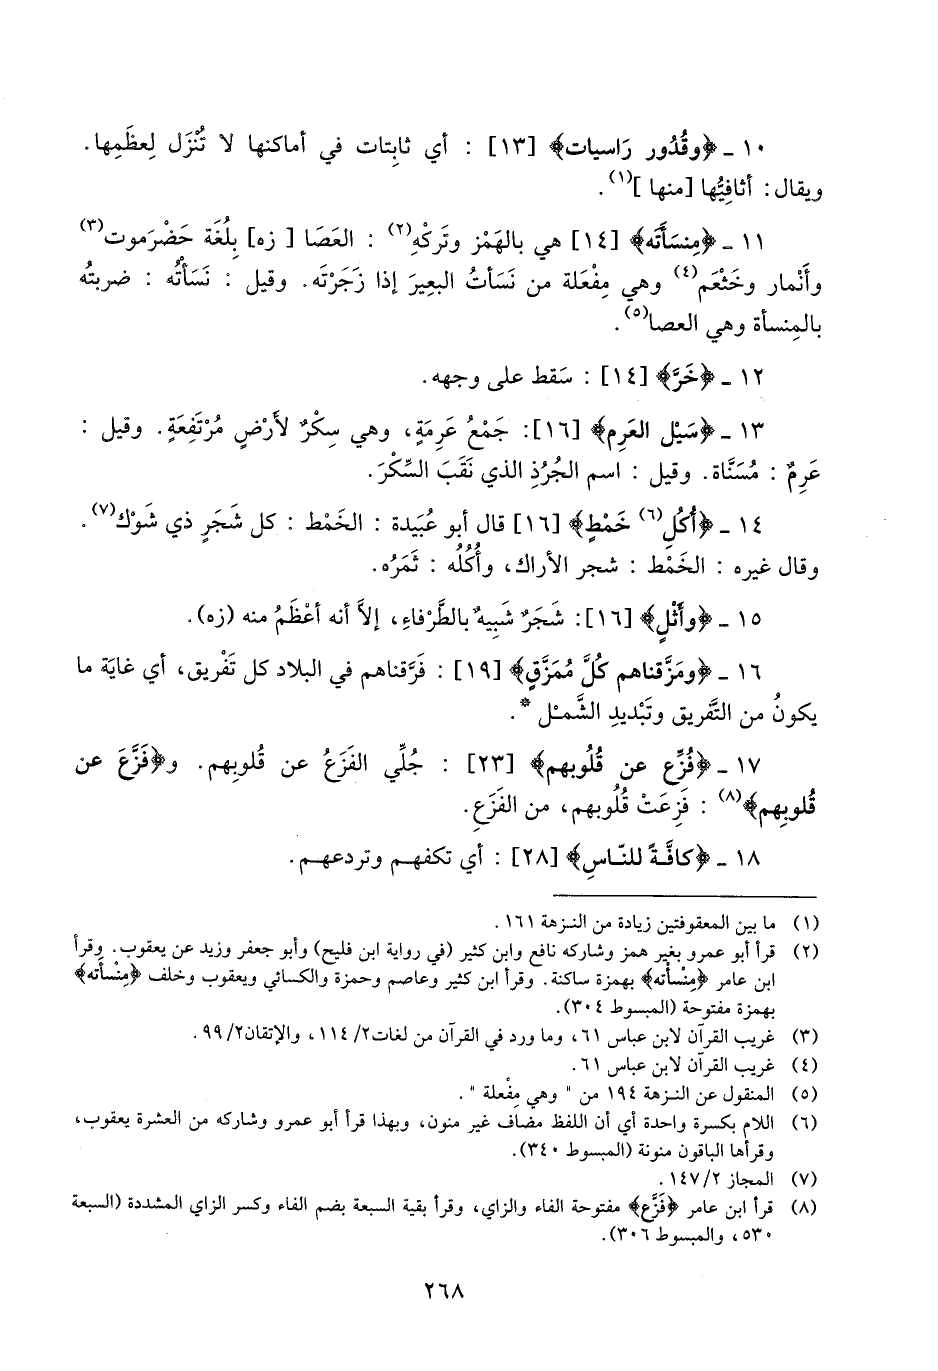 ١٠ ـ ﴿وقُدُور رَاسيات﴾ [١٣] : أي ثابِتات في أماكنها لا تُنْزَل لِعظَمِها.
ويقال: أثافِيُّها [منها ](١).
١١ ـ ﴿مِنسَأَته﴾ [١٤] هي بالهَمْز وتَركْهِ(٢) : العَصَا [ زه] بِلُغَة حَضْرَموت(٣)
وأَنْمار وخَثْعَم(٤) وهي مِفْعَلة من نَسَأتُ البعِيرَ إذا زَجَرْتَه. وقيل : نَسَأْتُه : ضربتُه
بالمِنسأة وهي العصا(٥).
١٢ ـ ﴿خَرَّ﴾ [١٤] : سَقط على وجهه.
١٣ ـ ﴿سَيْل العَرِم﴾ [١٦]: جَمْعُ عَرِمَةٍ، وهي سِكْرٌ لأَرْضٍ مُرْتَفِعَةٍ. وقيل :
عَرِمٌ : مُسَنَّاة. وقيل : اسم الجُرُذِ الذي نَقَبَ السِّكْرَ.
١٤ ـ ﴿أُكُلِ(٦) خَمْطٍ﴾ [١٦] قال أبو عُبَيدة : الخَمْط : كل شَجَرٍ ذي شَوْك(٧).
وقال غيره : الخَمْط : شجر الأراك، وأُكُلُه : ثَمَرُه.
١٥ ـ ﴿وأَثْلٍ﴾ [١٦]: شَجَرٌ شَبِيهٌ بالطَّرْفاءِ، إلاَّ أنه أعْظَمُ منه (زه).
١٦ ـ ﴿ومَزَّقناهم كُلَّ مُمَزَّقٍ﴾ [١٩] : فَرَّقناهم في البلاد كل تَفْريق، أي غايَة ما
يكونُ من التَّفريق وتَبْديدِ الشَّمْل *.
١٧ ـ ﴿فُزِّع عن قُلُوبهم﴾ [٢٣] : جُلِّي الفَزَعُ عن قلوبِهم. و﴿فَزَّعَ عن
قُلوبِهم﴾(٨) : فَزِعَتْ قُلُوبهم، من الفَزَعِ.
١٨ ـ ﴿كافَّةً للنّاسِ﴾ [٢٨] : أي تكفهم وتردعهم.
(١) ما بين المعقوفتين زيادة من النزهة ١٦١.
(٢) قرأ أبو عمرو بغير همز وشاركه نافع وابن كثير (في رواية ابن فليح) وأبو جعفر وزيد عن يعقوب. وقرأ
ابن عامر ﴿مِنْسأْته﴾ بهمزة ساكنة. وقرأ ابن كثير وعاصم وحمزة والكسائي ويعقوب وخلف ﴿مِنْسأَته﴾
بهمزة مفتوحة (المبسوط ٣٠٤).
(٣) غريب القرآن لابن عباس ٦١، وما ورد في القرآن من لغات٢/ ١١٤، والإتقان٢/ ٩٩.
(٤) غريب القرآن لابن عباس ٦١.
(٥) المنقول عن النزهة ١٩٤ من " وهي مِفْعلة ".
(٦) اللام بكسرة واحدة أي أن اللفظ مضاف غير منون، وبهذا قرأ أبو عمرو وشاركه من العشرة يعقوب،
وقرأها الباقون منونة (المبسوط ٣٤٠).
(٧) المجاز ٢/ ١٤٧.
(٨) قرأ ابن عامر ﴿فَزَّع﴾ مفتوحة الفاء والزاي، وقرأ بقية السبعة بضم الفاء وكسر الزاي المشددة (السبعة
٥٣٠، والمبسوط ٣٠٦).
٢٦٨